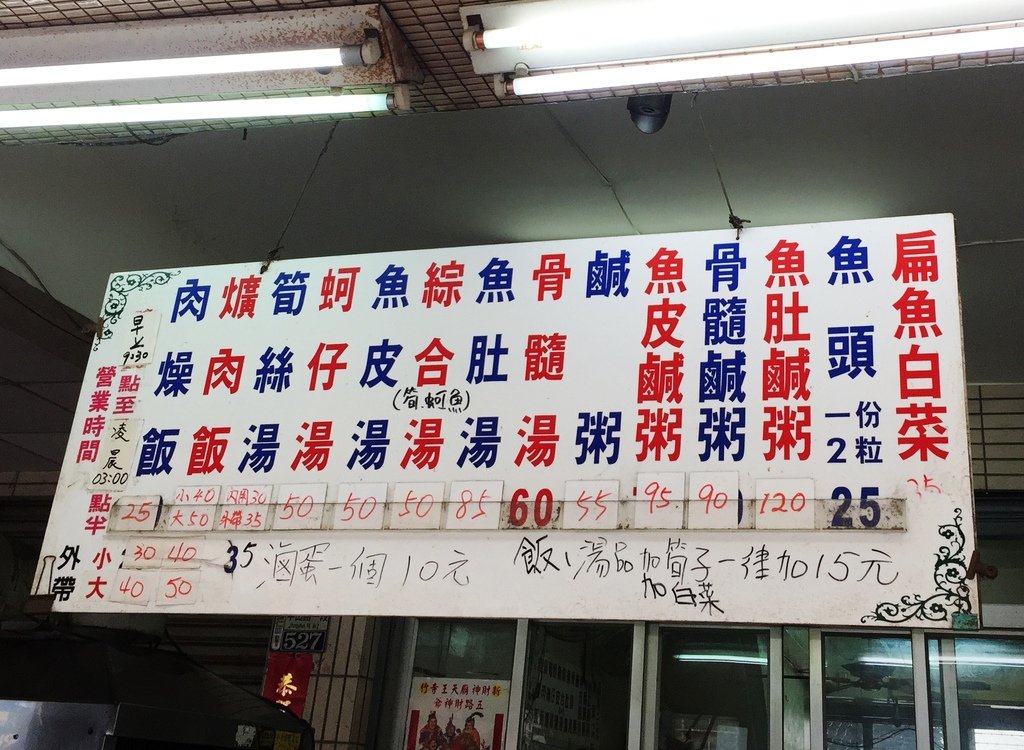 肉燥飯 25
爌肉飯 小40 大50
筍絲湯 內用30 外帶35
蚵仔湯 50
魚皮湯 50
綜合湯 50
(筍.蚵.魚)
魚肚湯 85
骨髓湯 60
鹹粥 55
魚皮鹹粥 95
骨髓鹹粥 90
魚肚鹹粥 120
魚頭 一份2粒 25
扁魚白菜 35
營業時間
早上
9:30
點至
凌晨
03:00
點半
外帶
小 30 40 35
大 40 50
滷蛋一個10元
飯、湯品加筍子一律加15元
加白菜
527
恭
新財神廟天王寺竹
五路財神爺